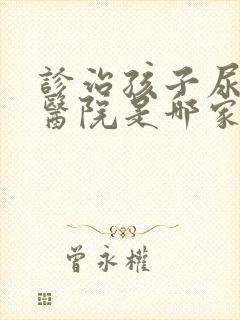 診治孩子尿
醫院是哪家
曾永權